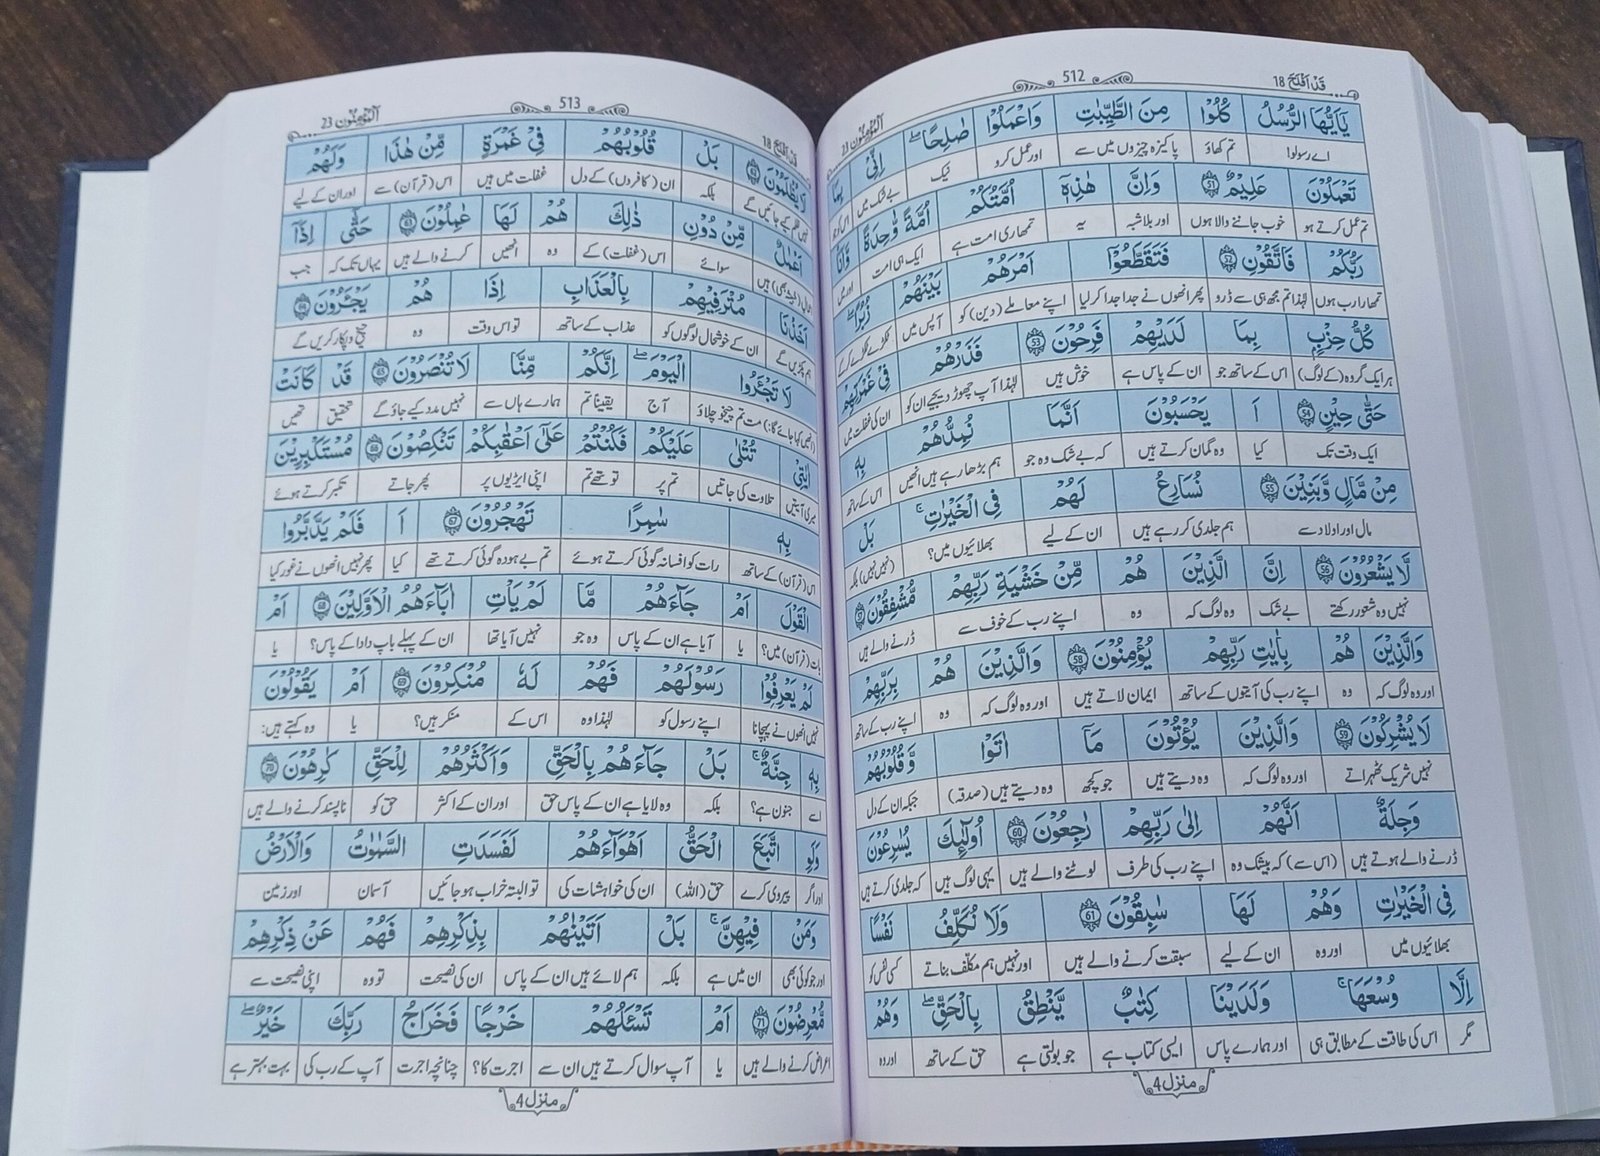 قَدْ اَفْلَحَ 18
512
اَلْمُؤْمِنُوْن 23
يٰٓاَيُّهَا الرُّسُلُ كُلُوْا مِنَ الطَّيِّبٰتِ وَاعْمَلُوْا صَالِحًا ؕ اِنِّيْ بِمَا
اے رسولو! تم کھاؤ پاکیزہ چیزوں میں سے اور عمل کرو نیک بے شک میں اس کو جو
تَعْمَلُوْنَ عَلِيْمٌ 51 وَاِنَّ هٰذِهٖٓ اُمَّتُكُمْ اُمَّةً وَّاحِدَةً وَّاَنَا
تم عمل کرتے ہو خوب جاننے والا ہوں اور بلاشبہ یہ تمھاری امت ہے ایک ہی امت اور میں
رَبُّكُمْ فَاتَّقُوْنِ 52 فَتَقَطَّعُوْٓا اَمْرَهُمْ بَيْنَهُمْ زُبُرًا ؕ
تمھارا رب ہوں لہٰذا تم مجھ ہی سے ڈرو پھر انھوں نے جدا جدا کر لیا اپنے معاملے (دین) کو آپس میں ٹکڑے ٹکڑے کر کے
كُلُّ حِزْبٍۭ بِمَا لَدَيْهِمْ فَرِحُوْنَ 53 فَذَرْهُمْ فِيْ غَمْرَتِهِمْ
ہر ایک گروہ (کے لوگ) اس کے ساتھ جو ان کے پاس ہے خوش ہیں لہٰذا آپ چھوڑ دیجیے ان کو ان کی غفلت میں
حَتّٰى حِيْنٍ 54 اَ يَحْسَبُوْنَ اَنَّمَا نُمِدُّهُمْ بِهٖ
ایک وقت تک کیا وہ گمان کرتے ہیں کہ بے شک وہ جو ہم بڑھا رہے ہیں انھیں اس کے ساتھ
مِنْ مَّالٍ وَّبَنِيْنَ 55 نُسَارِعُ لَهُمْ فِى الْخَيْرٰتِ ؕ بَلْ
مال اور اولاد سے ہم جلدی کر رہے ہیں ان کے لیے بھلائیوں میں؟ (نہیں نہیں) بلکہ
لَّا يَشْعُرُوْنَ 56 اِنَّ الَّذِيْنَ هُمْ مِّنْ خَشْيَةِ رَبِّهِمْ مُّشْفِقُوْنَ 57
نہیں وہ شعور رکھتے بے شک وہ لوگ کہ وہ اپنے رب کے خوف سے ڈرنے والے ہیں
وَالَّذِيْنَ هُمْ بِاٰيٰتِ رَبِّهِمْ يُؤْمِنُوْنَ 58 وَالَّذِيْنَ هُمْ بِرَبِّهِمْ
اور وہ لوگ کہ وہ اپنے رب کی آیتوں کے ساتھ ایمان لاتے ہیں اور وہ لوگ کہ وہ اپنے رب کے ساتھ
لَا يُشْرِكُوْنَ 59 وَالَّذِيْنَ يُؤْتُوْنَ مَآ اٰتَوْا وَّقُلُوْبُهُمْ
نہیں شریک ٹھہراتے اور وہ لوگ کہ وہ دیتے ہیں جو کچھ وہ دیتے ہیں (صدقہ) جبکہ ان کے دل
وَجِلَةٌ اَنَّهُمْ اِلٰى رَبِّهِمْ رٰجِعُوْنَ 60 اُولٰٓئِكَ يُسٰرِعُوْنَ
ڈرنے والے ہوتے ہیں (اس سے) کہ بیشک وہ اپنے رب کی طرف لوٹنے والے ہیں یہی لوگ ہیں کہ جلدی کرتے ہیں
فِى الْخَيْرٰتِ وَهُمْ لَهَا سٰبِقُوْنَ 61 وَلَا نُكَلِّفُ نَفْسًا
بھلائیوں میں اور وہ ان کے لیے سبقت کرنے والے ہیں اور نہیں ہم مکلف بناتے کسی نفس کو
اِلَّا وُسْعَهَا ۚ وَلَدَيْنَا كِتٰبٌ يَّنْطِقُ بِالْحَقِّ ؕ وَهُمْ
مگر اس کی طاقت کے مطابق ہی اور ہمارے پاس ایسی کتاب ہے جو بولتی ہے حق کے ساتھ اور وہ
منزل 4
قَدْ اَفْلَحَ 18
513
اَلْمُؤْمِنُوْن 23
لَا يُظْلَمُوْنَ 62 بَلْ قُلُوْبُهُمْ فِيْ غَمْرَةٍ مِّنْ هٰذَا وَلَهُمْ
نہیں ظلم کیے جائیں گے بلکہ ان (کافروں) کے دل غفلت میں ہیں اس (قرآن) سے اور ان کے لیے
اَعْمَالٌ مِّنْ دُوْنِ ذٰلِكَ هُمْ لَهَا عٰمِلُوْنَ 63 حَتّٰٓى اِذَآ
سوائے اس (غفلت) کے وہ انھیں کرنے والے ہیں یہاں تک کہ جب
اَخَذْنَا مُتْرَفِيْهِمْ بِالْعَذَابِ اِذَا هُمْ يَجْـَٔرُوْنَ 64
ہم پکڑیں گے ان کے خوشحال لوگوں کو عذاب کے ساتھ تو اس وقت وہ چیخ و پکار کریں گے
لَا تَجْـَٔرُوا الْيَوْمَ ؕ اِنَّكُمْ مِّنَّا لَا تُنْصَرُوْنَ 65 قَدْ كَانَتْ
(انھیں کہا جائے گا:) مت تم چیخو چلاؤ آج یقیناً تم ہمارے ہاں سے نہیں مدد کیے جاؤ گے تحقیق تھیں
اٰيٰتِيْ تُتْلٰى عَلَيْكُمْ فَكُنْتُمْ عَلٰٓى اَعْقَابِكُمْ تَنْكِصُوْنَ 66 مُسْتَكْبِرِيْنَ
میری آیتیں تلاوت کی جاتیں تم پر تو تھے تم اپنی ایڑیوں پر پھر جاتے تکبر کرتے ہوئے
بِهٖ سٰمِرًا تَهْجُرُوْنَ 67 اَ فَلَمْ يَدَّبَّرُوا
اس (قرآن) کے ساتھ رات کو افسانہ گوئی کرتے ہوئے تم بے ہودہ گوئی کرتے تھے کیا پھر نہیں انھوں نے غور کیا
الْقَوْلَ اَمْ جَآءَهُمْ مَّا لَمْ يَاْتِ اٰبَآءَهُمُ الْاَوَّلِيْنَ 68 اَمْ
بات (قرآن) میں؟ یا آیا ہے ان کے پاس وہ جو نہیں آیا تھا ان کے پہلے باپ دادا کے پاس؟ یا
لَمْ يَعْرِفُوْا رَسُوْلَهُمْ فَهُمْ لَهٗ مُنْكِرُوْنَ 69 اَمْ يَقُوْلُوْنَ
نہیں انھوں نے پہچانا اپنے رسول کو لہٰذا وہ اس کے منکر ہیں؟ یا وہ کہتے ہیں:
بِهٖ جِنَّةٌ ؕ بَلْ جَآءَهُمْ بِالْحَقِّ وَاَكْثَرُهُمْ لِلْحَقِّ كٰرِهُوْنَ 70
اسے جنون ہے؟ بلکہ وہ لایا ہے ان کے پاس حق اور ان کے اکثر حق کو ناپسند کرنے والے ہیں
وَلَوِ اتَّبَعَ الْحَقُّ اَهْوَآءَهُمْ لَفَسَدَتِ السَّمٰوٰتُ وَالْاَرْضُ
اور اگر پیروی کرے حق (اللہ) ان کی خواہشات کی تو البتہ خراب ہو جائیں آسمان اور زمین
وَمَنْ فِيْهِنَّ ؕ بَلْ اَتَيْنٰهُمْ بِذِكْرِهِمْ فَهُمْ عَنْ ذِكْرِهِمْ
اور جو کوئی بھی ان میں ہے بلکہ ہم لائے ہیں ان کے پاس ان کی نصیحت تو وہ اپنی نصیحت سے
مُّعْرِضُوْنَ 71 اَمْ تَسْـَٔلُهُمْ خَرْجًا فَخَرَاجُ رَبِّكَ خَيْرٌ ؕ
اعراض کرنے والے ہیں یا آپ سوال کرتے ہیں ان سے اجرت کا؟ چنانچہ اجرت آپ کے رب کی بہت بہتر ہے
منزل 4